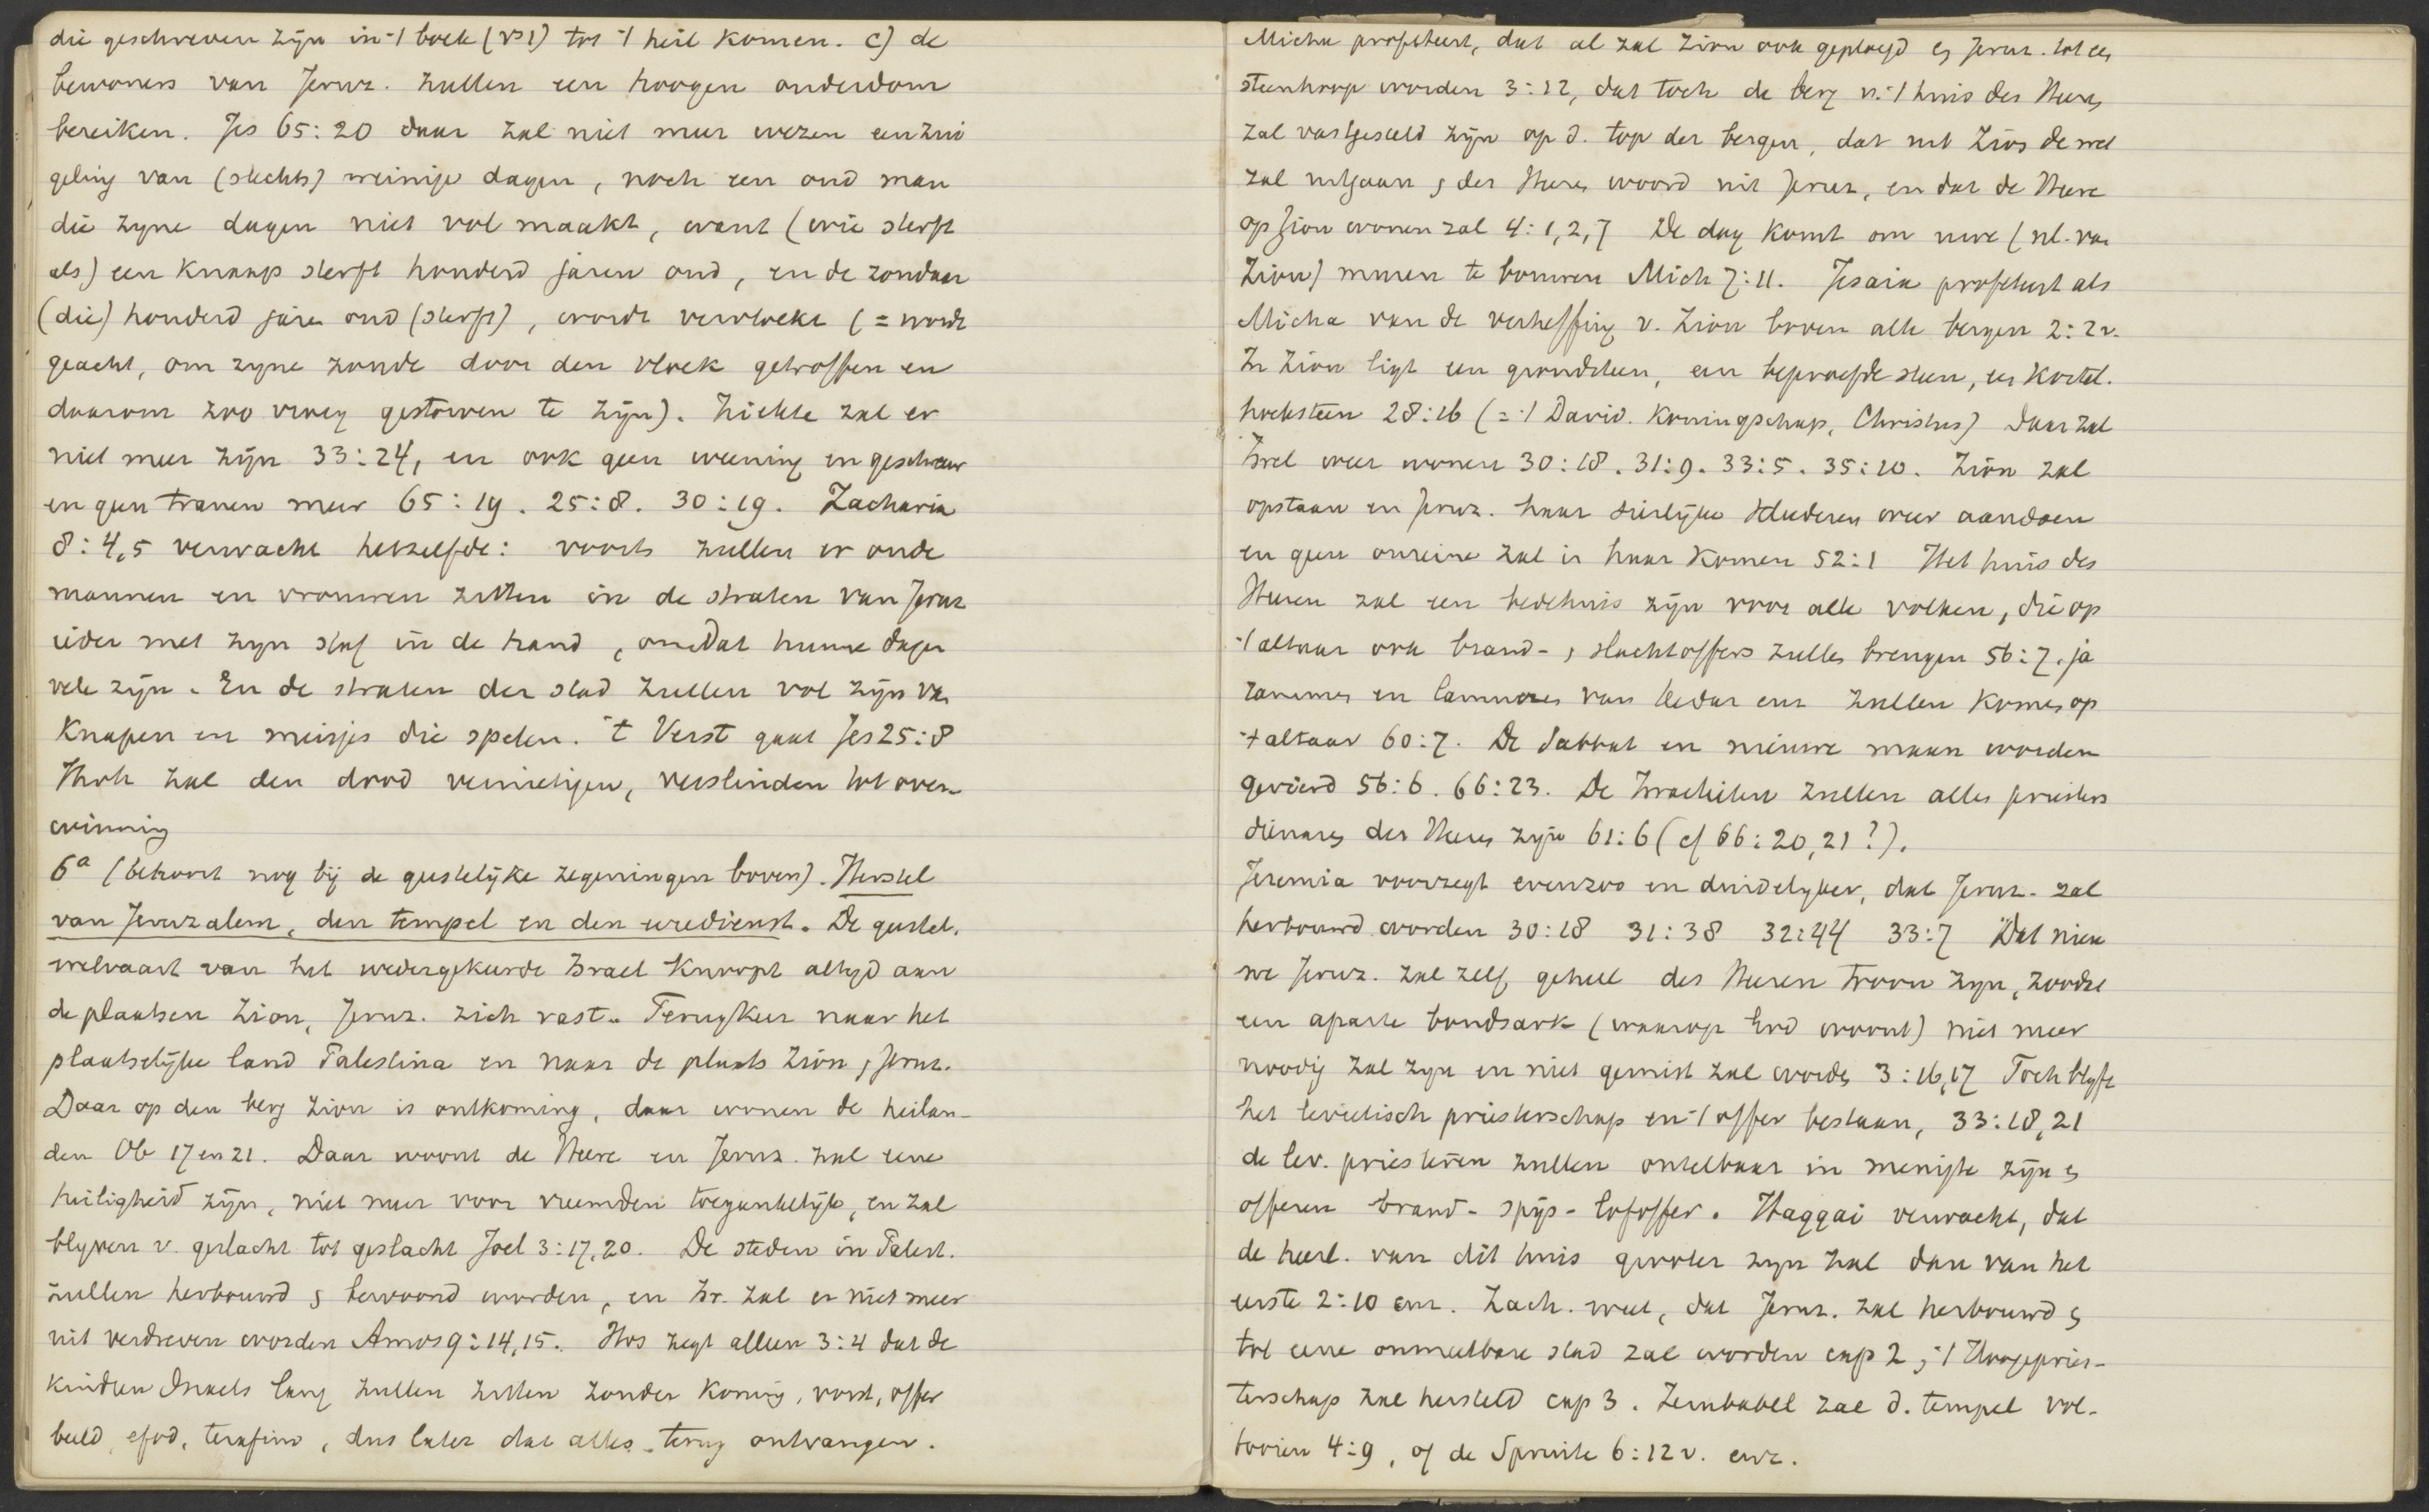 die geschreven zijn in 't boek (vs 1) tot 't heil komen. c) de
bewoners van Jeruz. zullen een hoogen ouderdom
bereiken. Jes 65:20 daar zal niet meer wezen een zui
geling van (slechts) weinige dagen, noch een oud man
die zyne dagen niet vol maakt, want (wie sterft
als) een knaap sterft honderd jaren oud, en de zondaar
(die) honderd jaren oud (sterft), wordt vervloekt (= wordt
geacht, om zyne zonde door den vloek getroffen en
daarom zoo vroeg gestorven te zijn). Ziekte zal er
niet meer zijn 33:24, en ook geen weening en geschreeuw
en geen tranen meer 65:19. 25:8. 30:19. Zacharia
8:4,5 verwacht hetzelfde: voorts zullen er oude
mannen en vrouwen zitten in de straten van Jeruz
ieder met zyn staf in de hand, omdat hunne dagen
vele zijn. En de straten der stad zullen vol zijn van
Knapen en meisjes die spelen. 't Verst gaat Jes 25:8
Jhvh zal den dood vernietigen, verslinden tot over-
winning
6a (behoort nog bij de geestelijke zegeningen boven). Herstel
van Jeruzalem, den tempel en den eredienst. De geestel.
welvaart van het wedergekeerde Israel knoopt altyd aan
de plaatsen Zion, Jeruz. zich vast. Terugkeer naar het
plaatselijke land Palestina en naar de plaats Zion, Jeruz.
Daar op den berg Zion is ontkoming, daar wonen de heilan-
den Ob 17 en 21. Daar woont de Heere en Jeruz. zal eene
heiligheid zijn, niet meer voor vreemden toegankelijk, en zal
blyven v. geslacht tot geslacht Joel 3:17,20. De steden in Palest.
zullen herbouwd & bewoond worden, en Isr. zal er niet meer
uit verdreven worden Amos 9:14,15. Hos zegt alleen 3:4 dat de
kinderen Israels lang zullen zitten zonder koning, vorst, offer
beeld, efod, terafim, dus later dat alles terug ontvangen.
Micha profeteert, dat al zal Zion ook geploegd & Jeruz. tot een
steenhoop worden 3:12, dat toch de berg v. 't huis des Heeren
zal vastgesteld zijn op d. top der bergen, dat uit Zion de wet
zal uitgaan & des Heeren woord uit Jeruz, en dat de Heere
op Zion wonen zal 4:1,2,7 De dag komt om uwe (nl. van
Zion) muren te bouwen Mich 7:11. Jesaia profeteert als
Micha van de verheffing v. Zion boven alle bergen 2:2v.
In Zion ligt een grondsteen, een beproefde steen, een kostel.
hoeksteen 28:16 (= 't David. Koningschap, Christus) Daar zal
Isrel weer wonen 30:18. 31:9. 33:5. 35:10. Zion zal
opstaan en Jeruz. haar sierlijke kleederen weer aandoen
en geen onreine zal in haar komen 52:1 Het huis des
Heeren zal een bedehuis zijn voor alle volken, die op
't altaar ook brand- & slachtoffers zullen brengen 56:7, ja
rammen en lammeren van Kedar enz zullen komen op
't altaar 60:7. De Sabbat en nieuwe maan worden
gevierd 56:6. 66:23. De Israelieten zullen alles priesters
dienaren des Heeren zijn 61:6 (cf 66:20,21?).
Jeremia voorzegt evenzoo en duidelyker, dat Jeruz. zal
herbouwd worden 30:18 31:38 32:44 33:7 Dat nieu
we Jeruz. zal zelf geheel des Heeren troon zyn, zoodat
een aparte bondsark (waarop God woont) niet meer
noodig zal zyn en niet gemist zal worden 3:16,17 Toch blyft
het levietisch priesterschap en 't offer bestaan, 33:18,21
de lev. priesteren zullen ontelbaar in menigte zijn &
offeren brand- spijs- lofoffer. Haggai verwacht, dat
de heerl. van dit huis grooter zyn zal dan van het
eerste 2:10 enz. Zach. weet, dat Jeruz. zal herbouwd &
tot eene onmeetbare stad zal worden cap 2, 't Hoogepries-
terschap zal hersteld cap 3. Zerubabel zal d. tempel vol-
tooien 4:9, of de Spruite 6:12 v. enz.